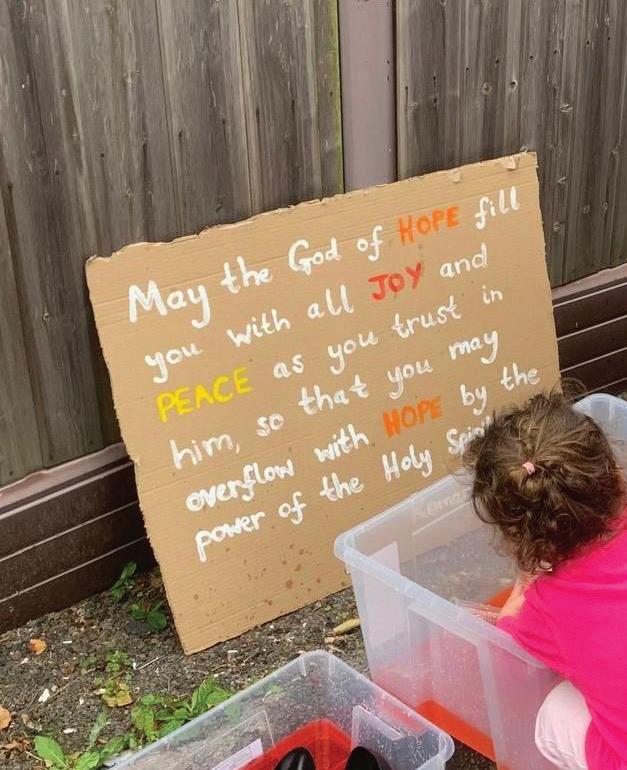 May the God of HOPE fill
you with all JOY and
PEACE as you trust in
him, so that you may
overflow with HOPE by the
power of the Holy